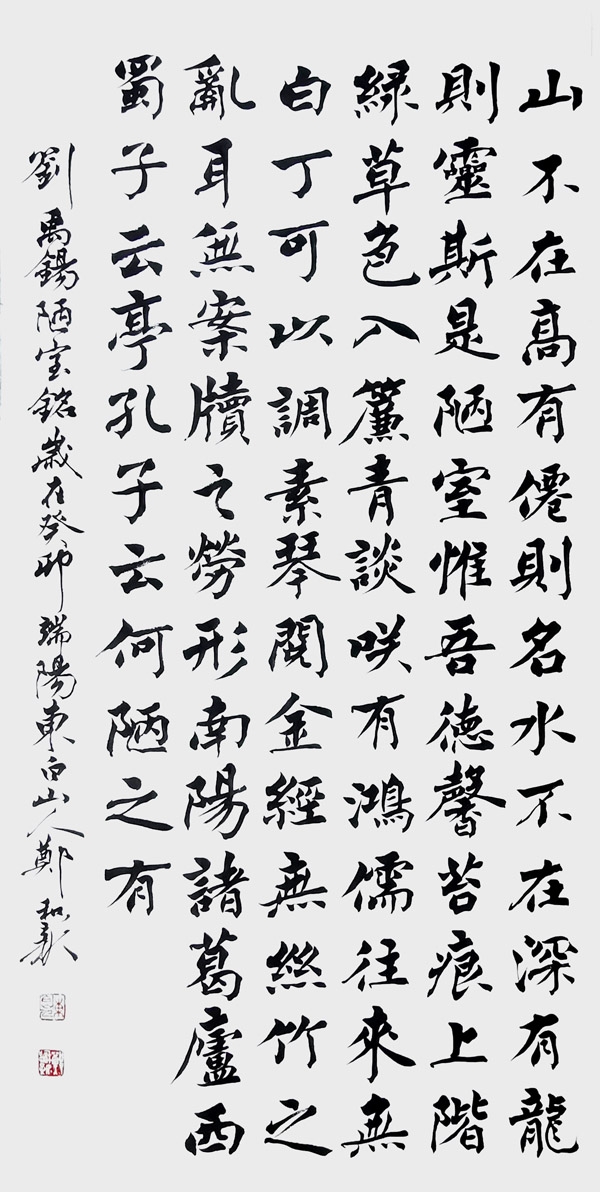 山不在髙有僊則名水不在深有龍
則靈斯是陋室惟吾德馨苔痕上階
綠草色入簾青談咲有鴻儒往來無
白丁可以調素琴閱金經無絲竹之
亂耳無案牘之勞形南陽諸葛廬西
蜀子云亭孔子云何陋之有
劉禹錫陋室銘歲在癸卯端陽東白山人鄭和